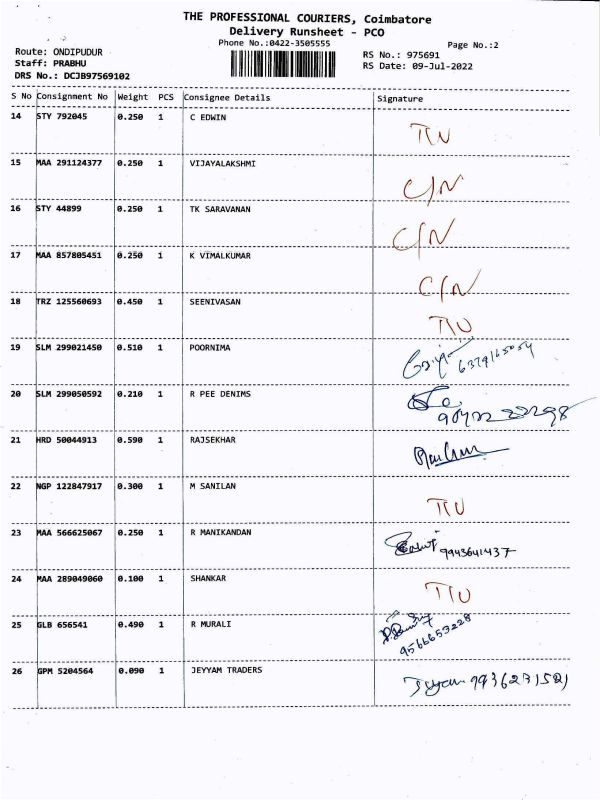 THE PROFESSIONAL COURIERS, Coimbatore
Delivery Runsheet - PCO
Phone No.:0422-3505555
Page No.:2
Route: ONDIPUDUR
RS No.: 975691
Staff: PRABHU
RS Date: 09-Jul-2022
DRS No.: DCJB97569102
S No Consignment No Weight PCS Consignee Details Signature
14 STY 792045 0.250 1 C EDWIN
15 MAA 291124377 0.250 1 VIJAYALAKSHMI C/N
16 STY 44899 0.250 1 TK SARAVANAN C/N
17 MAA 857805451 0.250 1 K VIMALKUMAR C/N
18 TRZ 125560693 0.450 1 SEENIVASAN
19 SLM 299021450 0.510 1 POORNIMA 6379165054
20 SLM 299050592 0.210 1 R PEE DENIMS
21 HRD 50044913 0.590 1 RAJSEKHAR
22 NGP 122847917 0.300 1 M SANILAN
23 MAA 566625067 0.250 1 R MANIKANDAN 9943641437
24 MAA 289049060 0.100 1 SHANKAR
25 GLB 656541 0.490 1 R MURALI 9566653228
26 GPM 5204564 0.090 1 JEYYAM TRADERS